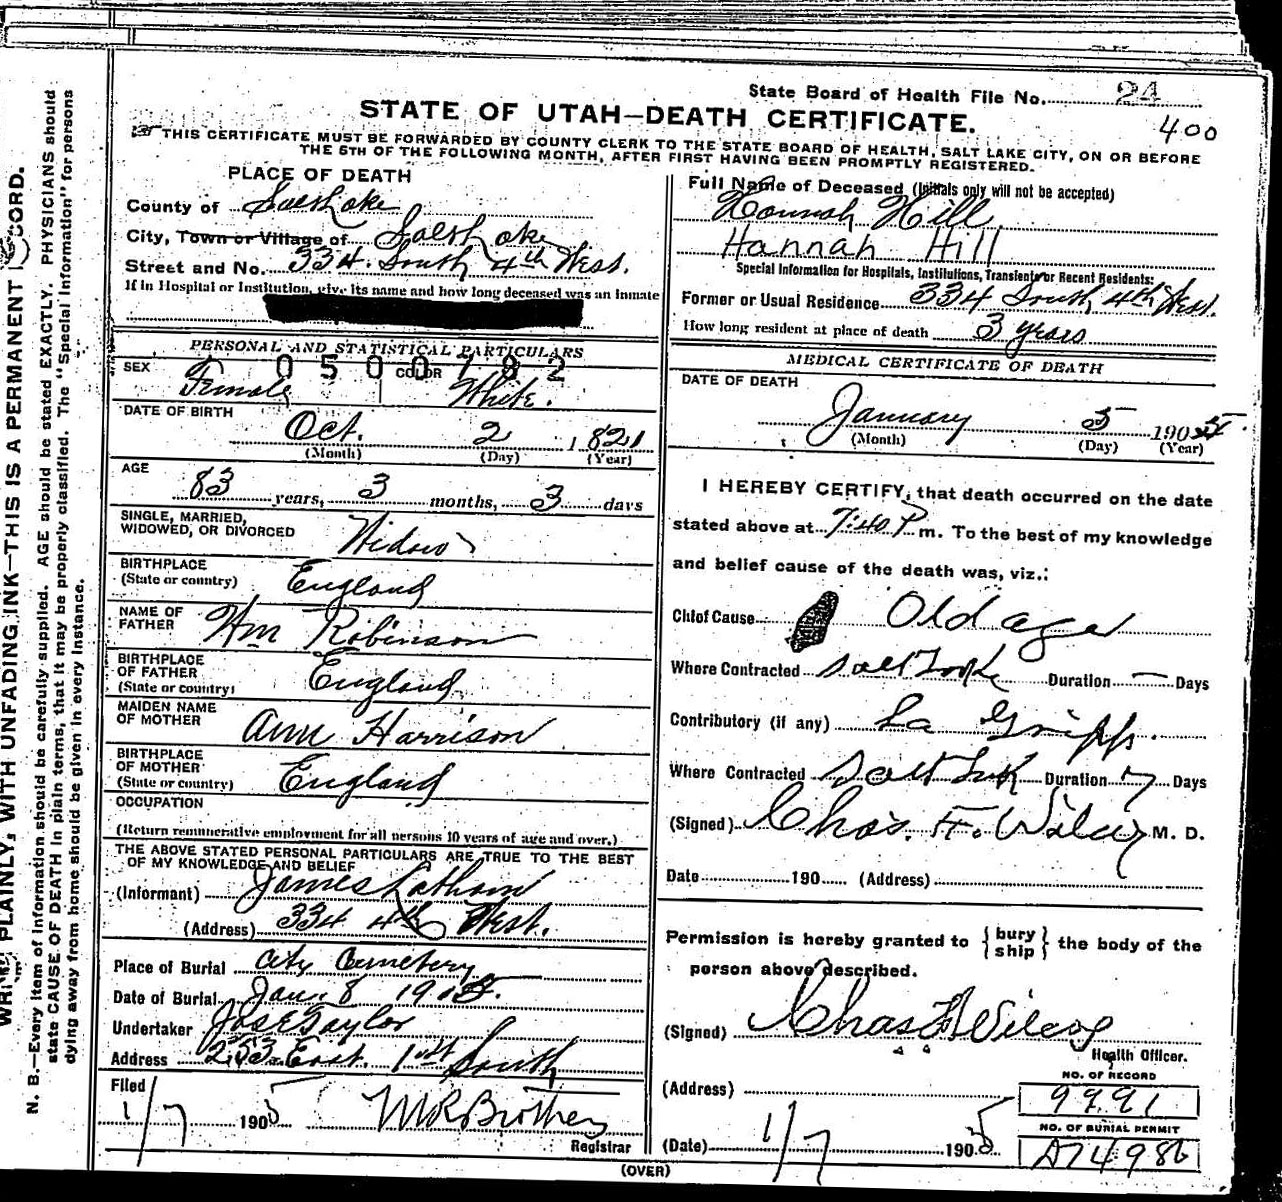 State Board of Health File No. 24
400
STATE OF UTAH—DEATH CERTIFICATE.
THIS CERTIFICATE MUST BE FORWARDED BY COUNTY CLERK TO THE STATE BOARD OF HEALTH, SALT LAKE CITY, ON OR BEFORE
THE 5TH OF THE FOLLOWING MONTH, AFTER FIRST HAVING BEEN PROMPTLY REGISTERED.
WRITE PLAINLY, WITH UNFADING INK—THIS IS A PERMANENT RECORD.
N. B.—Every item of information should be carefully supplied. AGE should be stated EXACTLY. PHYSICIANS should
state CAUSE OF DEATH in plain terms, that it may be properly classified. The "Special Information" for persons
dying away from home should be given in every instance.
PLACE OF DEATH
County of Salt Lake
City, Town or Village of Salt Lake
Street and No. 334. South 4th West.
If in Hospital or Institution, give its name and how long deceased was an inmate
PERSONAL AND STATISTICAL PARTICULARS
0500782
SEX Female COLOR White.
DATE OF BIRTH
Oct. 2 1821
(Month) (Day) (Year)
AGE
83 years, 3 months, 3 days
SINGLE, MARRIED,
WIDOWED, OR DIVORCED Widow
BIRTHPLACE
(State or country) England
NAME OF
FATHER Wm Robinson
BIRTHPLACE
OF FATHER
(State or country) England
MAIDEN NAME
OF MOTHER Ann Harrison
BIRTHPLACE
OF MOTHER
(State or country) England
OCCUPATION
(Return remunerative employment for all persons 10 years of age and over.)
THE ABOVE STATED PERSONAL PARTICULARS ARE TRUE TO THE BEST
OF MY KNOWLEDGE AND BELIEF
(Informant) James Latham
(Address) 334 4th West.
Place of Burial City Cemetery
Date of Burial Jan. 8 1905.
Undertaker Jos E Taylor
Address 253 East 1st South
Filed
1/7 1905
Registrar
Full Name of Deceased (Initials only will not be accepted)
Hannah Hill
Hannah Hill
Special Information for Hospitals, Institutions, Transients or Recent Residents:
Former or Usual Residence 334 South 4th West.
How long resident at place of death 3 years
MEDICAL CERTIFICATE OF DEATH
DATE OF DEATH
January 5 1905
(Month) (Day) (Year)
I HEREBY CERTIFY, that death occurred on the date
stated above at 7:40 P m. To the best of my knowledge
and belief cause of the death was, viz.:
Chief Cause Old age
Where Contracted Salt Lake Duration — Days
Contributory (if any) La Gripp.
Where Contracted Salt Lake Duration 7 Days
(Signed) Chas. F. Wilcox M. D.
Date 190 (Address)
Permission is hereby granted to { bury
ship } the body of the
person above described.
(Signed) Chas F Wilcox
Health Officer.
(Address)
(Date) 1/7 1905
NO. OF RECORD
9991
NO. OF BURIAL PERMIT
A74986
(OVER)